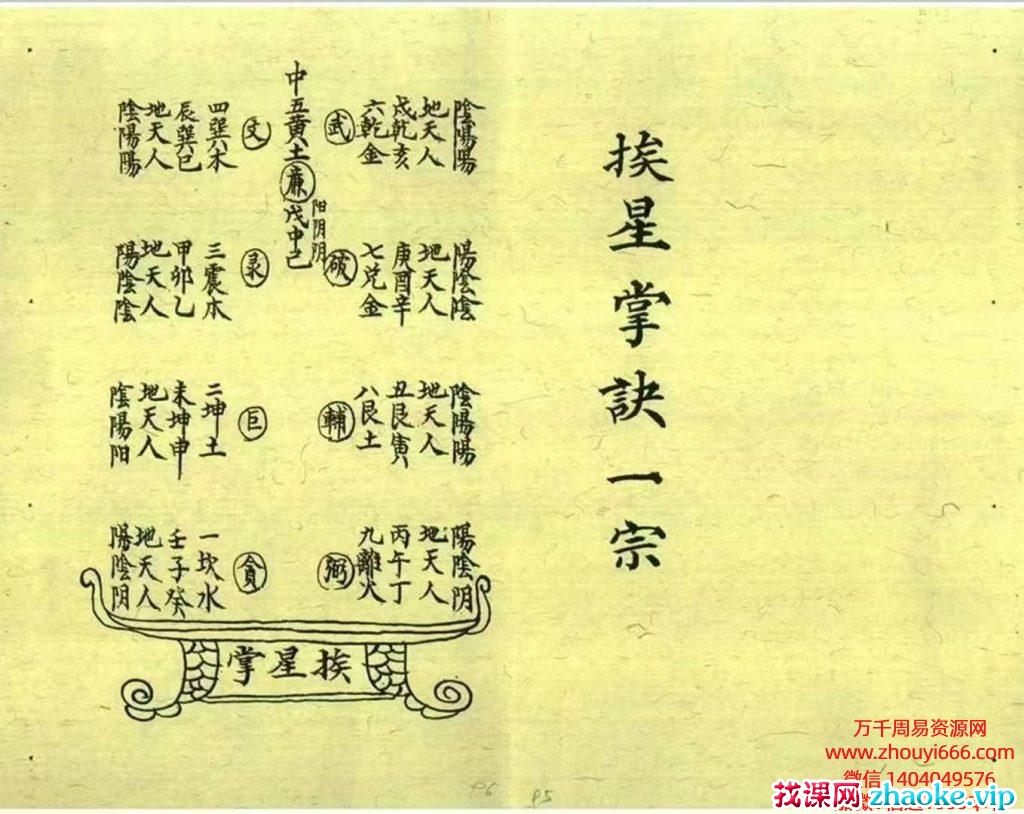 挨星掌訣一宗
中五黃土廉戊中己
阳阴阴
武
六乾金
戌乾亥
地天人
陰陽陽
破
七兌金
庚酉辛
地天人
陽陰陰
輔
八艮土
丑艮寅
地天人
陰陽陽
弼
九離火
丙午丁
地天人
陽陰阴
文
四巽木
辰巽巳
地天人
陰陽陽
录
三震木
甲卯乙
地天人
陽陰陰
巨
二坤土
未坤申
地天人
陰陽阳
貪
一坎水
壬子癸
地天人
陽陰阴
挨星掌
P6
P5
万千周易资源网
www.zhouyi666.com
微信 1404049576
找课网 zhaoke.vip